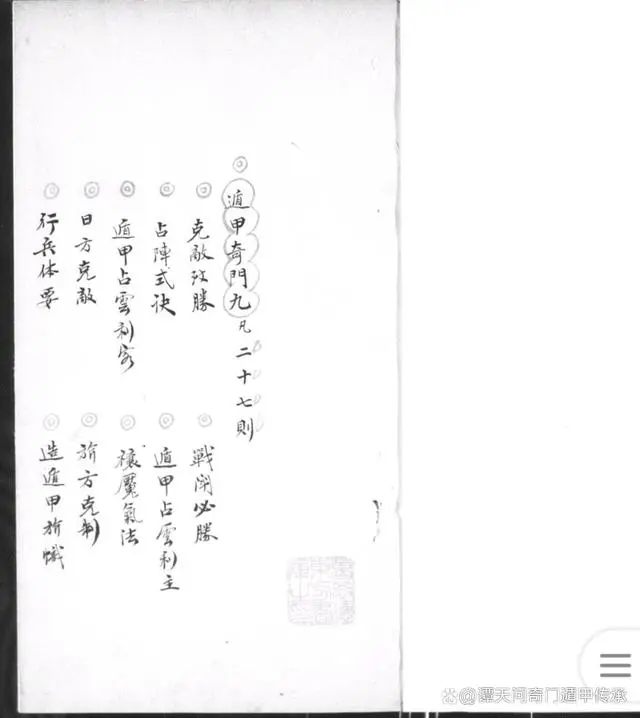 遁甲奇門九凡二十七則
克敵攻勝
戰鬪必勝
占陣式訣
遁甲占雲利主
遁甲占雲利客
禳魘氣法
日方克敵
旂方克制
行兵体要
造遁甲旂幟
@谭天问奇门遁甲传承